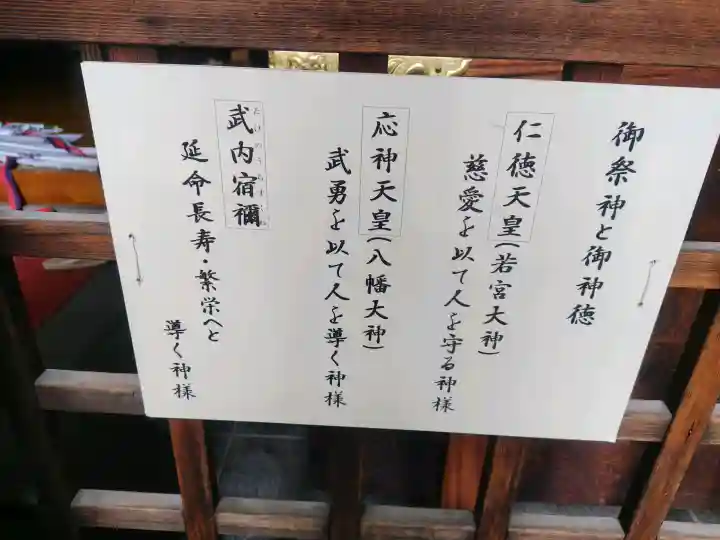 御祭神と御神徳
仁徳天皇(若宮大神)
慈愛を以て人を守る神様
応神天皇(八幡大神)
武勇を以て人を導く神様
武内宿禰
延命長寿・繁栄へと
導く神様